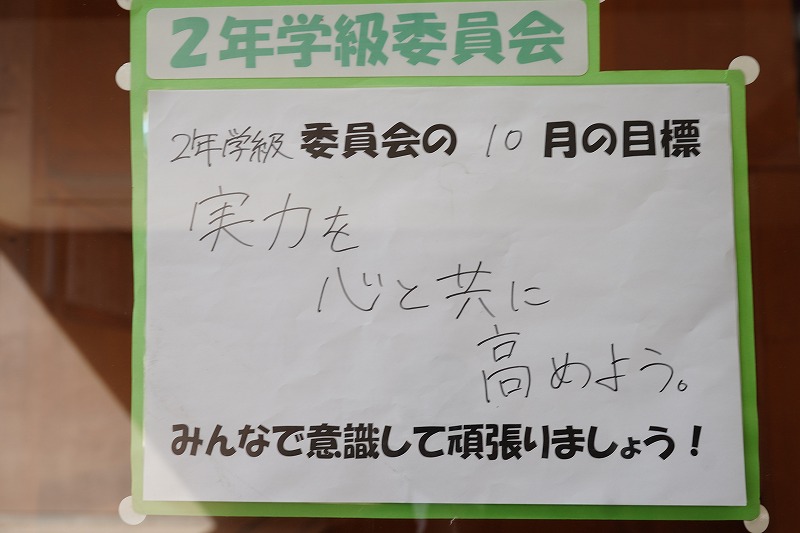 2年学級委員会
2年学級 委員会の 10 月の目標
実力を
心と共に
高めよう。
みんなで意識して頑張りましょう！